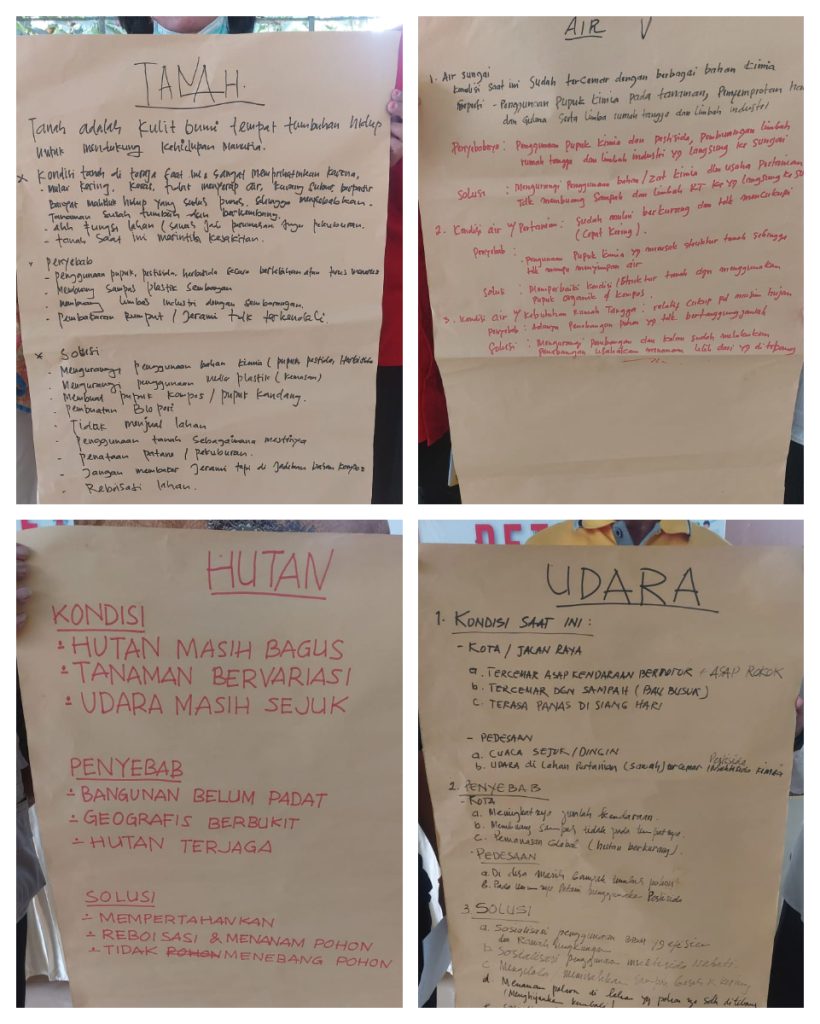 TANAH.
Tanah adalah Kulit bumi tempat tumbuhan hidup
untuk mendukung kehidupan manusia.
x Kondisi tanah di saat ini sangat memprihatinkan karena,
- mulai kering, keras, sulit menyerap air, kurang subur, berpasir
Banyak makhluk hidup yang sudah punah, sehingga menyebabkan
Tanaman susah tumbuh dan berkembang.
- alih fungsi lahan (sawah jadi perumahan juga pekuburan.
- tanah saat ini merintih kesakitan.
penyebab
- penggunaan pupuk, pestisida, herbisida secara berlebihan atau terus menerus
- Membuang sampah plastik sembarangan
- membuang limbah industri dengan sembarangan.
- pembakaran rumput / jerami tdk terkendali.
x Solusi
- Mengurangi penggunaan bahan kimia ( pupuk, pestisida, Herbisida
- Mengurangi penggunaan media plastik ( kemasan)
- Membuat pupuk kompos / pupuk kandang.
- pembuatan Bio pori
- Tidak menjual lahan
- penggunaan tanah sebagaimana mestinya
- penataan / pekuburan.
- Jangan membakar Jerami tapi di jadikan bahan kompos
- Reboisasi lahan.
AIR V
1. Air sungai
Kondisi saat ini sudah tercemar dengan berbagai bahan kimia
seperti - Penggunaan Pupuk kimia pada tanaman, Penyemprotan
dan Gulma serta limba rumah tangga dan limbah industri
Penyebabnya : Penggunaan Pupuk kimia dan pestisida, Pembuangan limbah
rumah tangga dan limbah industri yg langsung ke sungai
Solusi : Mengurangi Penggunaan bahan / zat kimia dlm usaha Pertanian
Tdk membuang sampah dan limbah RT ke yg langsung ke
2. Kondisi air u/ Pertanian : Sudah mulai berkurang dan tdk mencukupi
(Cepat Kering).
Penyebab : Penggunaan Pupuk Kimia yg merusak struktur tanah sehingga
tdk mampu menyimpan air
Solusi : Memperbaiki kondisi / struktur tanah dgn menggunakan
Pupuk organik & kompos.
3. Kondisi air u/ Kebutuhan Rumah Tangga : relatif cukup pd musim hujan
Penyebab : Adanya Penebangan pohon yg tdk bertanggung jawab
Solusi : Mengurangi Penebangan dan kalau sudah melakukan
Penebangan usahakan menanam lebih dari yg di tebang
HUTAN
KONDISI
- HUTAN MASIH BAGUS
- TANAMAN BERVARIASI
- UDARA MASIH SEJUK
PENYEBAB
- BANGUNAN BELUM PADAT
- GEOGRAFIS BERBUKIT
- HUTAN TERJAGA
SOLUSI
- MEMPERTAHANKAN
- REBOISASI & MENANAM POHON
- TIDAK POHON MENEBANG POHON
UDARA
1. KONDISI SAAT INI :
- KOTA / JALAN RAYA
a. TERCEMAR ASAP KENDARAAN BERMOTOR + ASAP ROKOK
b. TERCEMAR DGN SAMPAH ( BAU BUSUK )
c. TERASA PANAS DI SIANG HARI
- PEDESAAN
a. CUACA SEJUK / DINGIN
b. UDARA di Lahan Pertanian (sawah) tercemar Pestisida insektisida kimia
2. PENYEBAB
- KOTA
a. Meningkatnya jumlah kendaraan.
b. Membuang sampah tidak pada tempatnya.
c. Pemanasan Global (hutan berkurang).
- PEDESAAN
a. Di desa masih banyak pohon
b. Pada umumnya Petani menggunakan Pestisida
3. SOLUSI
a. Sosialisasi penggunaan BBM
dan Ramah lingkungan
b. Sosialisasi penggunaan Nabati.
c. Mengelola / memisahkan sampah basah & kering
d. Menanam pohon di lahan yg pohon nya sdh ditebang
(Menghijaukan kembali)